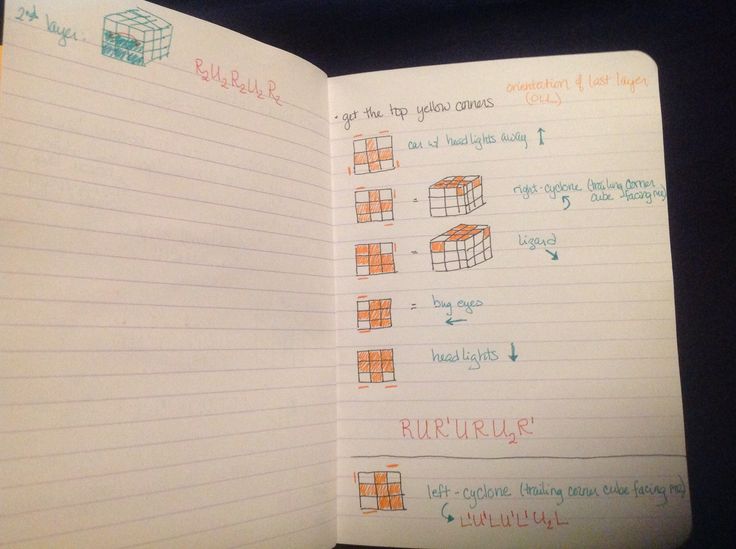 2nd layer:
R2U2R2U2R2
orientation of last layer
(OLL)
• get the top yellow corners
car w/ headlights away ↑
= right-cyclone (trailing corner
cube facing me)
= lizard
= bug eyes
←
headlights ↓
RUR'URU2R'
left-cyclone (trailing corner cube facing me)
L'U'LU'L'U2L